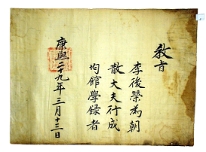 敎旨
李後榮為朝
散大夫行成
均館學錄者
康熙二十九年三月十三日